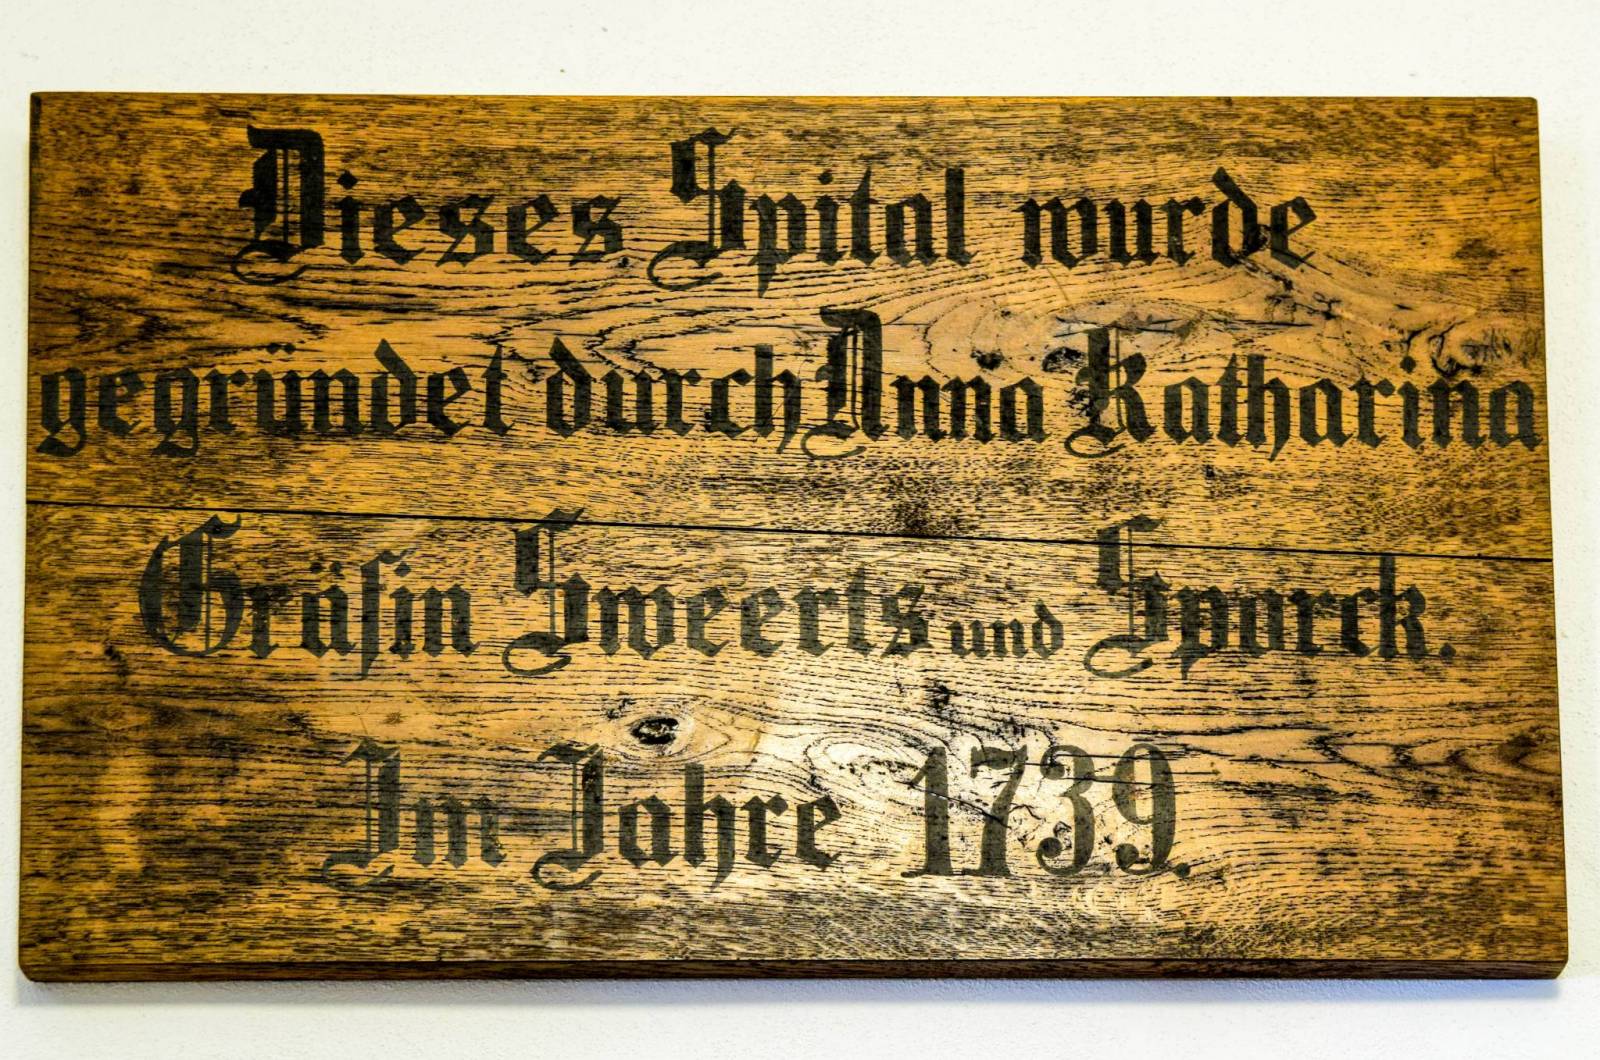 Dieses Spital wurde
gegründet durch Anna Katharina
Gräfin Sweerts und Sporck.
Im Jahre 1739.